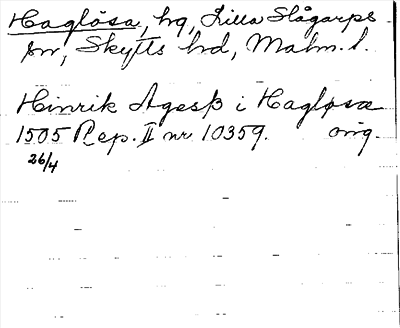 Haglösa, by, Lilla Slågarps
sn, Skytts hd, Malm. l.
Hinrik Agesß i Hagløsæ
1505 Rep. II nr 10359. orig.
26/4